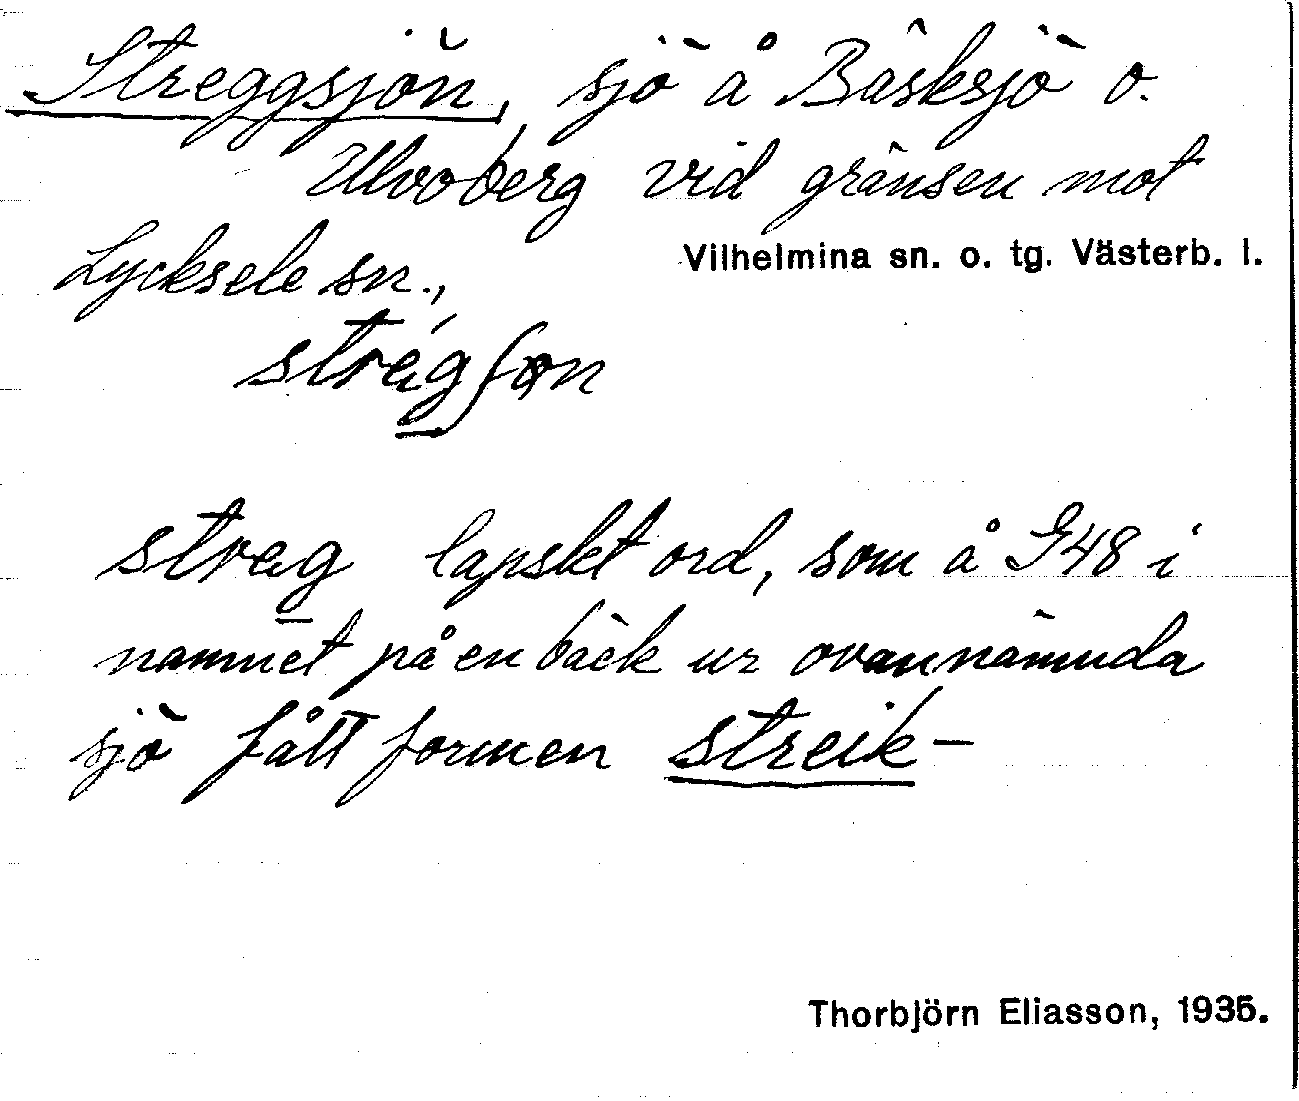 Streggsjön, sjö å Bäsksjö o.
Ulvoberg vid gränsen mot
Vilhelmina sn. o. tg. Västerb. l.
Lycksele sn.,
streg lapskt ord, som å G48 i
namnet på en bäck ur ovannämnda
sjö fått formen streik-
Thorbjörn Eliasson, 1935.